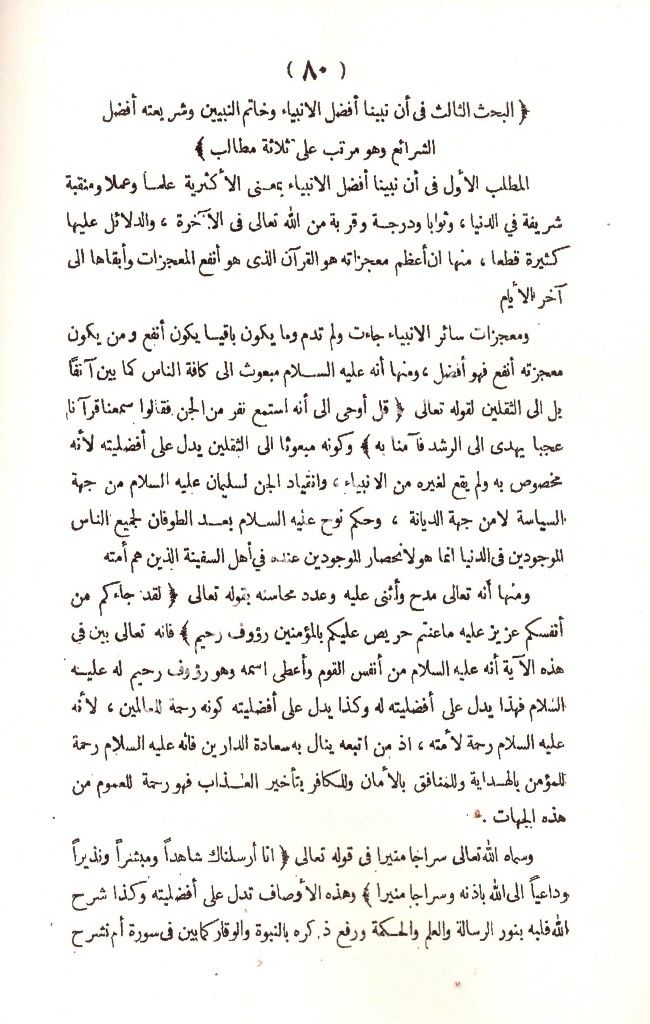 ( ٨٠ )
﴿ البحث الثالث فى أن نبينا أفضل الانبياء وخاتم النبيين وشريعته أفضل
الشرائع وهو مرتب على ثلاثة مطالب ﴾
المطلب الأول فى أن نبينا أفضل الانبياء بمعنى الأكثرية علما وعملا ومنقبة
شريفة في الدنيا ، وثوابا ودرجة وقربة من الله تعالى فى الآخرة ، والدلائل عليها
كثيرة قطعا ، منها ان أعظم معجزاته هو القرآن الذى هو أنفع المعجزات وأبقاها الى
آخر الأيام
ومعجزات سائر الانبياء جاءت ولم تدم وما يكون باقيا يكون أنفع ومن يكون
معجزته أنفع فهو أفضل ، ومنها أنه عليه السلام مبعوث الى كافة الناس كما بين آنفاً
بل الى الثقلين لقوله تعالى ﴿ قل أوحى الى أنه استمع نفر من الجن فقالوا سمعنا قرآنا
عجبا يهدى الى الرشد فآمنا به ﴾ وكونه مبعوثا الى الثقلين يدل على أفضليته لأنه
مخصوص به ولم يقع لغيره من الانبياء ، وانقياد الجن لسليمان عليه السلام من جهة
السياسة لا من جهة الديانة ، وحكم نوح عليه السلام بعد الطوفان لجميع الناس
الموجودين فى الدنيا انما هو لانحصار الموجودين عنده فى أهل السفينة الذين هم أمته
ومنها أنه تعالى مدح وأثنى عليه وعدد محاسنه بقوله تعالى ﴿ لقد جاءكم من
أنفسكم عزيز عليه ماعنتم حريص عليكم بالمؤمنين رؤوف رحيم ﴾ فانه تعالى بين في
هذه الآية أنه عليه السلام من أنفس القوم وأعطى اسمه وهو رؤوف رحيم له عليه
السلام فهذا يدل على أفضليته له وكذا يدل على أفضليته كونه رحمة للعالمين ، لأنه
عليه السلام رحمة لأمته ، اذ من اتبعه ينال به سعادة الدارين فانه عليه السلام رحمة
للمؤمن بالهداية وللمنافق بالأمان وللكافر بتأخير العذاب فهو رحمة للعموم من
هذه الجهات .
وسماه الله تعالى سراجا منيرا فى قوله تعالى ﴿ انا أرسلناك شاهداً ومبشراً ونذيراً
وداعياً الى الله باذنه وسراجا منيرا ﴾ وهذه الأوصاف تدل على أفضليته وكذا شرح
الله قلبه بنور الرسالة والعلم والحكمة ورفع ذكره بالنبوة والوقار كما بين فى سورة ألم نشرح